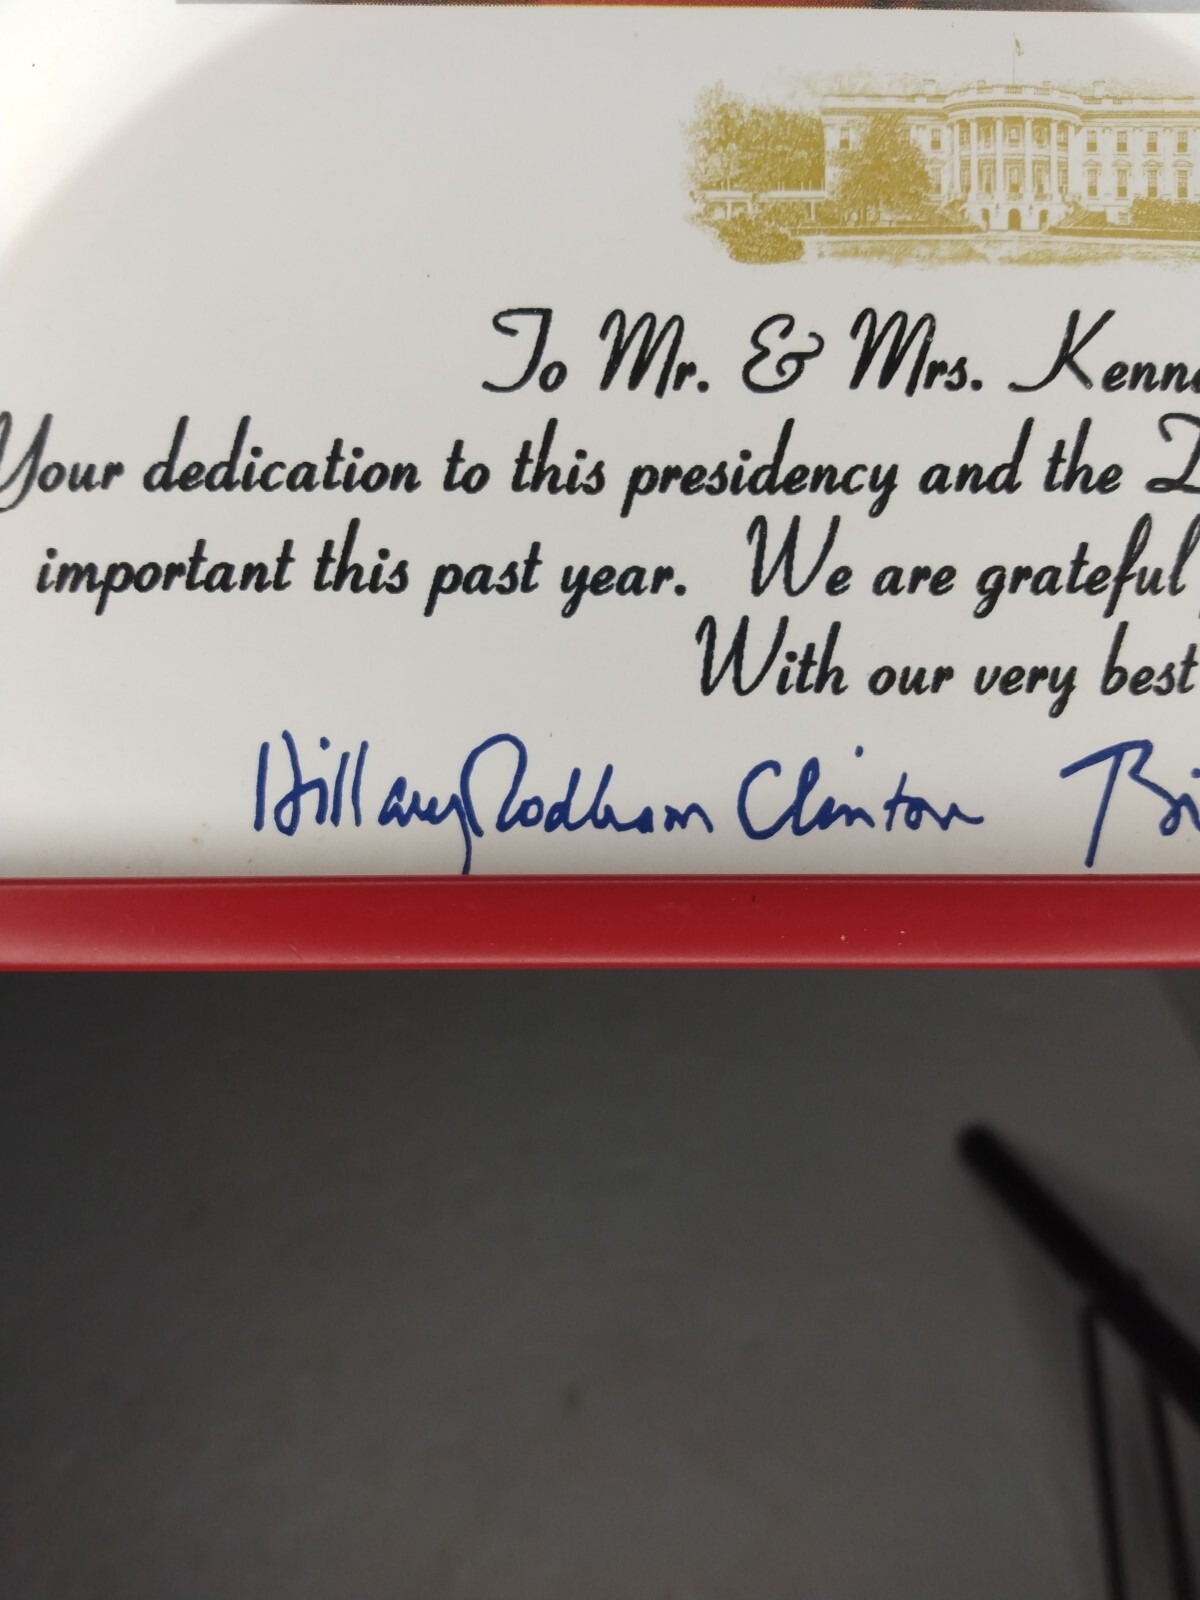 To Mr. & Mrs. Kenne
Your dedication to this presidency and the D
important this past year. We are grateful
With our very best
Hillary Rodham Clinton Bi